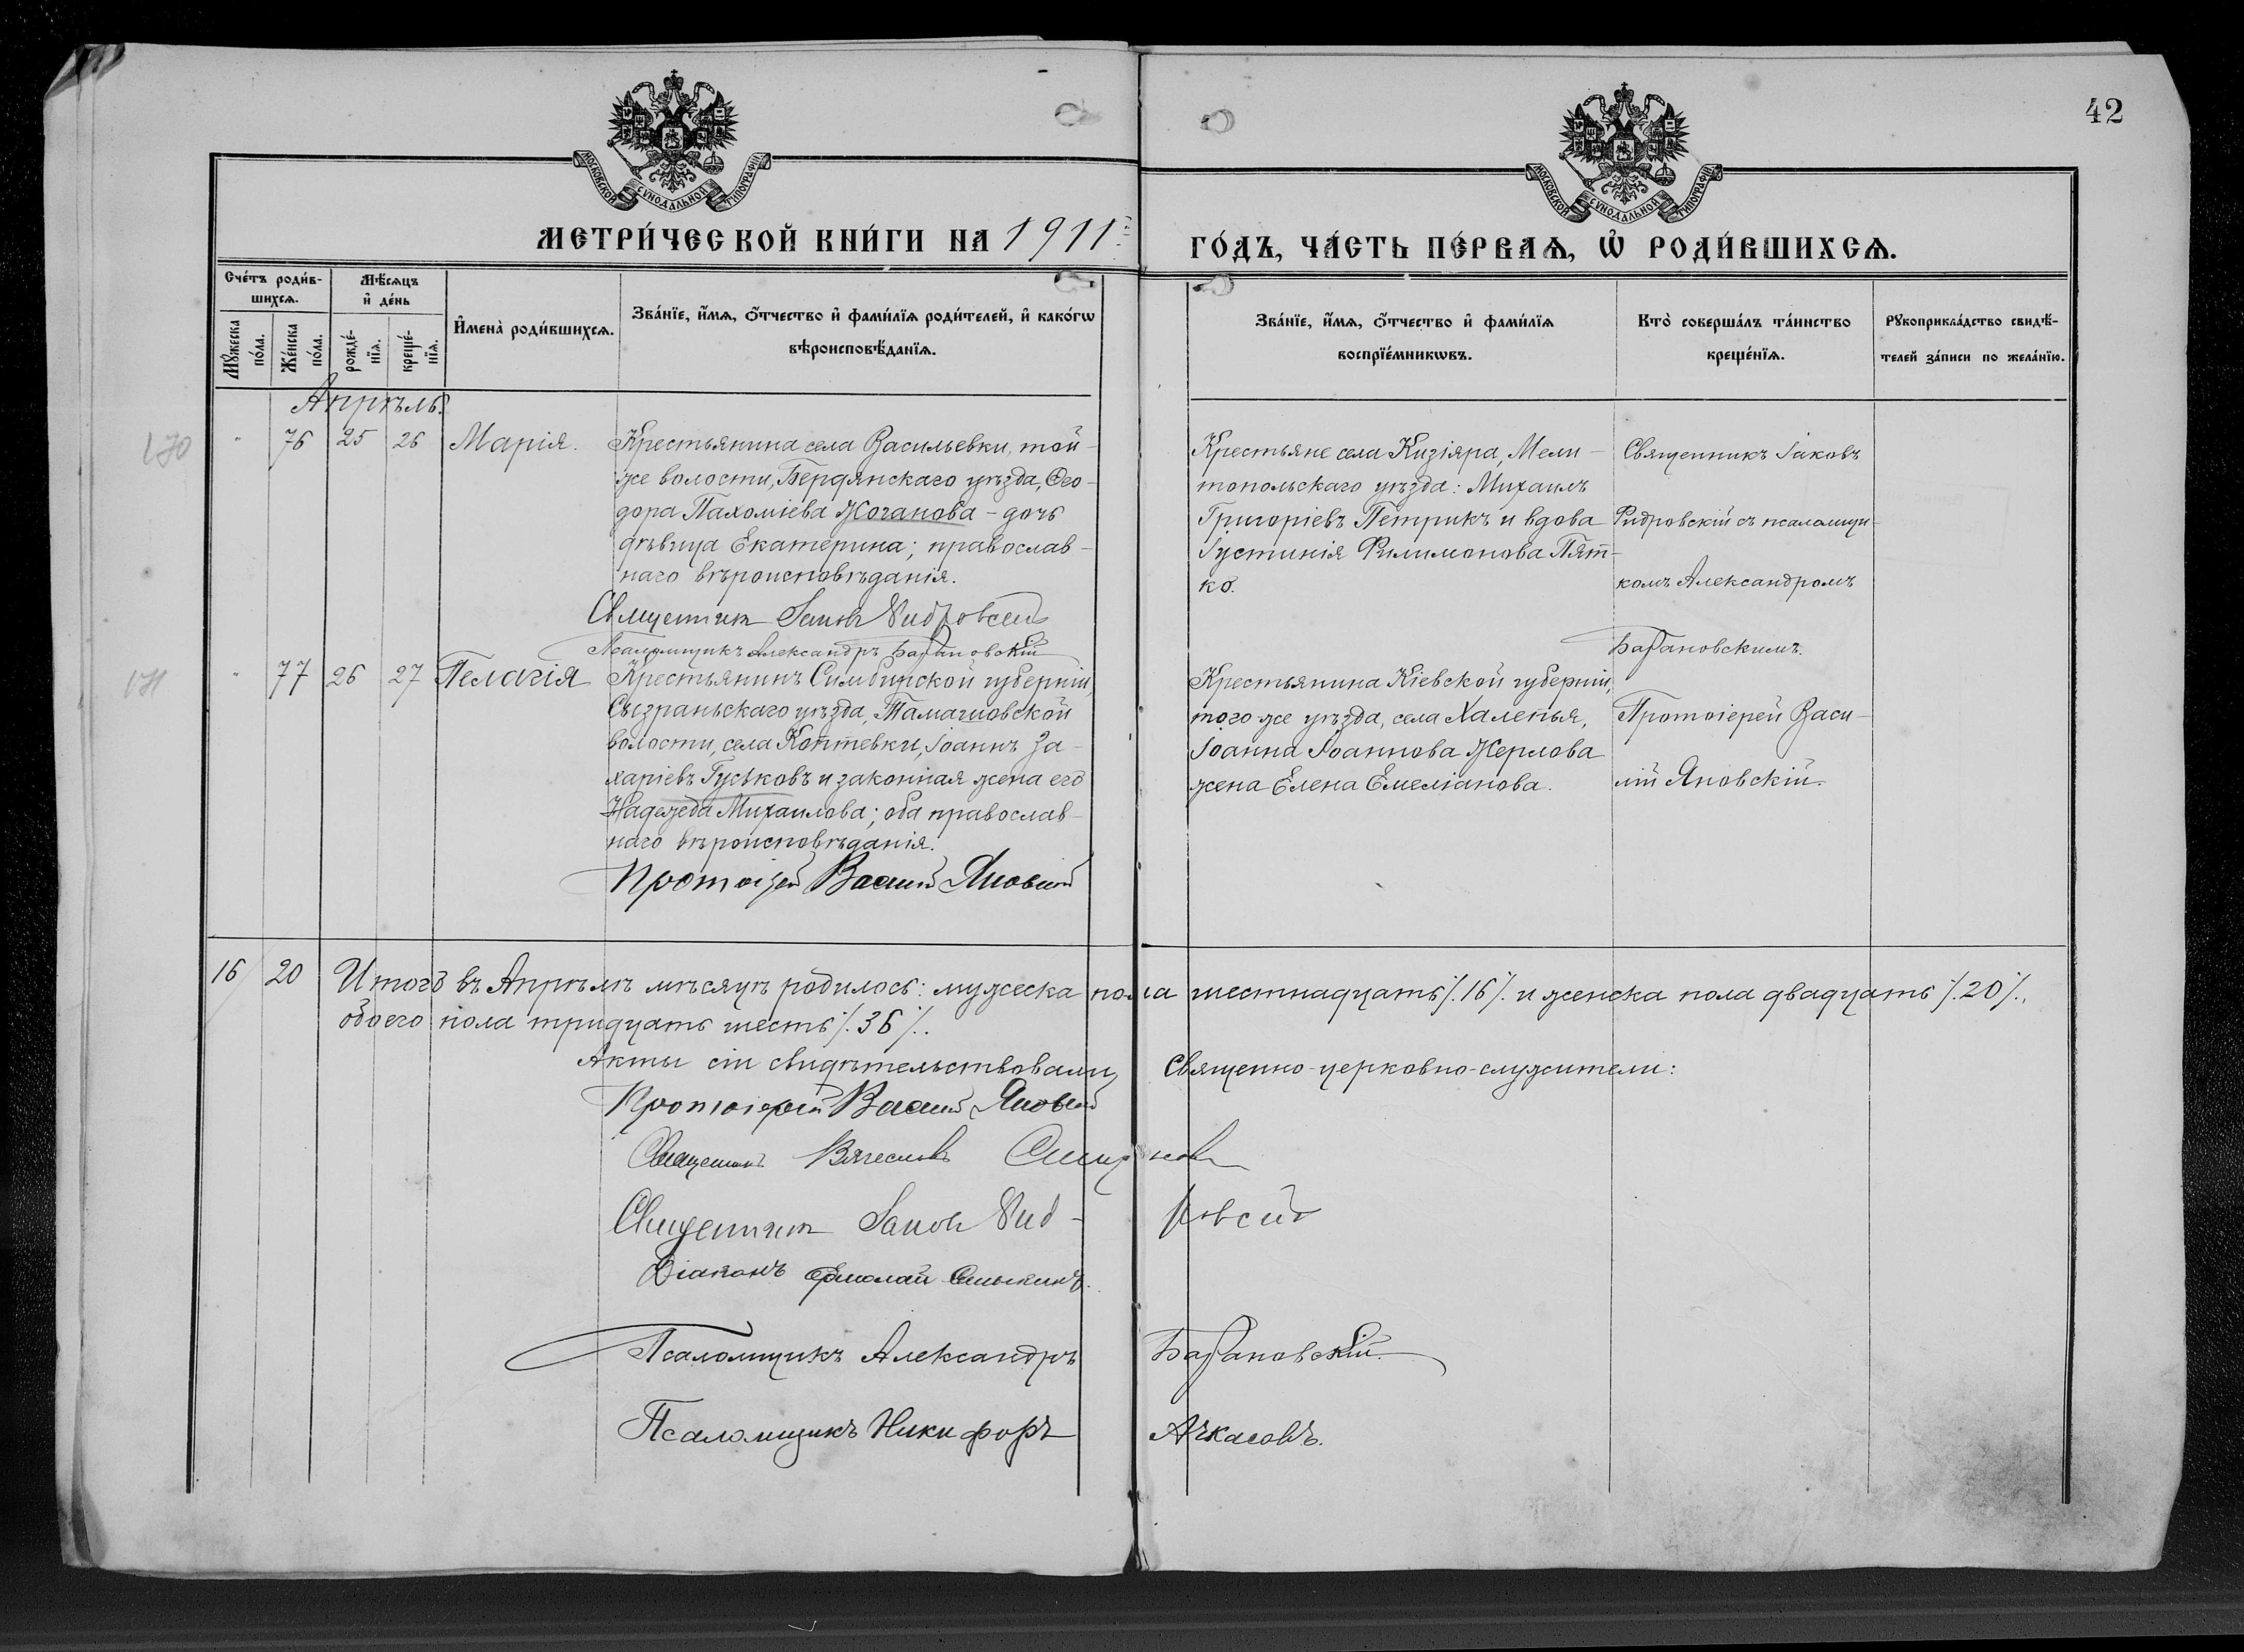 42
МОСКОВСКОЙ СѴНОДАЛЬНОЙ ТИПОГРАФІИ
МОСКОВСКОЙ СѴНОДАЛЬНОЙ ТИПОГРАФІИ
МЕТРИ́ЧЕСКОЙ КНИ́ГИ НА 1911
ГО́ДЪ, ЧА́СТЬ ПЕ́РВАѦ, Ѡ҆ РОДИ́ВШИХСѦ.
Сче́тъ роди́в-
шихсѧ.
Мѣ́сѧцъ
и҆ де́нь
Мꙋ́жеска
по́ла.
Же́нска
по́ла.
рожде́-
нїѧ.
креще́-
нїѧ.
И҆мена̀ роди́вшихсѧ.
Зва́нїе, и҆́мѧ, о҆́тчество и҆ фами́лїѧ роди́телей, и҆ како́гѡ
вѣроисповѣ́данїѧ.
Зва́нїе, и҆́мѧ, о҆́тчество и҆ фами́лїѧ
воспрїе́мникѡвъ.
Кто̀ соверша́лъ та́инство
креще́нїѧ.
Рꙋкоприкла́дство свидѣ́-
телей за́писи по жела́нїю.
Апрѣль.
170
" 76 25 26 Марія.
Крестьянина села Васильевки, той-
же волости, Бердянскаго уѣзда, Ѳео-
дора Пахоміева Жоганова - дочь
дѣвица Екатерина; православ-
наго вѣроисповѣданія.
Священник Іаков Видровскій
Псаломщикъ Александръ Барановскій
Крестьяне села Кизіяра, Мели-
топольскаго уѣзда: Михаилъ
Григоріевъ Петрикъ и вдова
Іустинія Филимонова Пят-
ко.
Священникъ Іаковъ
Видровскій съ псаломщи-
комъ Александромъ
Барановскимъ.
171
" 77 26 27 Пелагія
Крестьянинъ Симбирской губерніи,
Сызраньскаго уѣзда,
волости, села Коптевки, Іоаннъ За-
харіевъ Гуськовъ и законная жена его
Надежда Михаилова; оба православ-
наго вѣроисповѣданія.
Протоіерей Василій Яновскій
Крестьянина Кіевской губерніи,
того же уѣзда, села Халепья,
Іоанна Іоаннова Жерлова
жена Елена Емеліанова.
Протоіерей Васи-
лій Яновскій.
16 20 Итого въ Апрѣлѣ мѣсяцѣ родилось: мужеска пола шестнадцать /. 16 /. и женска пола двадцать /. 20 /.,
обоего пола тридцать шесть /. 36 /.
Акты сіи свидѣтельствовали, Священно-церковно-служители:
Протоіерей Василій Яновскій
Священникъ Вячеславъ Смирновъ
Священник Іаков Вид-ровскій
Діаконъ Ермолай
Псаломщикъ Александръ Барановскій.
Псаломщикъ Никифоръ Ачкасовъ.